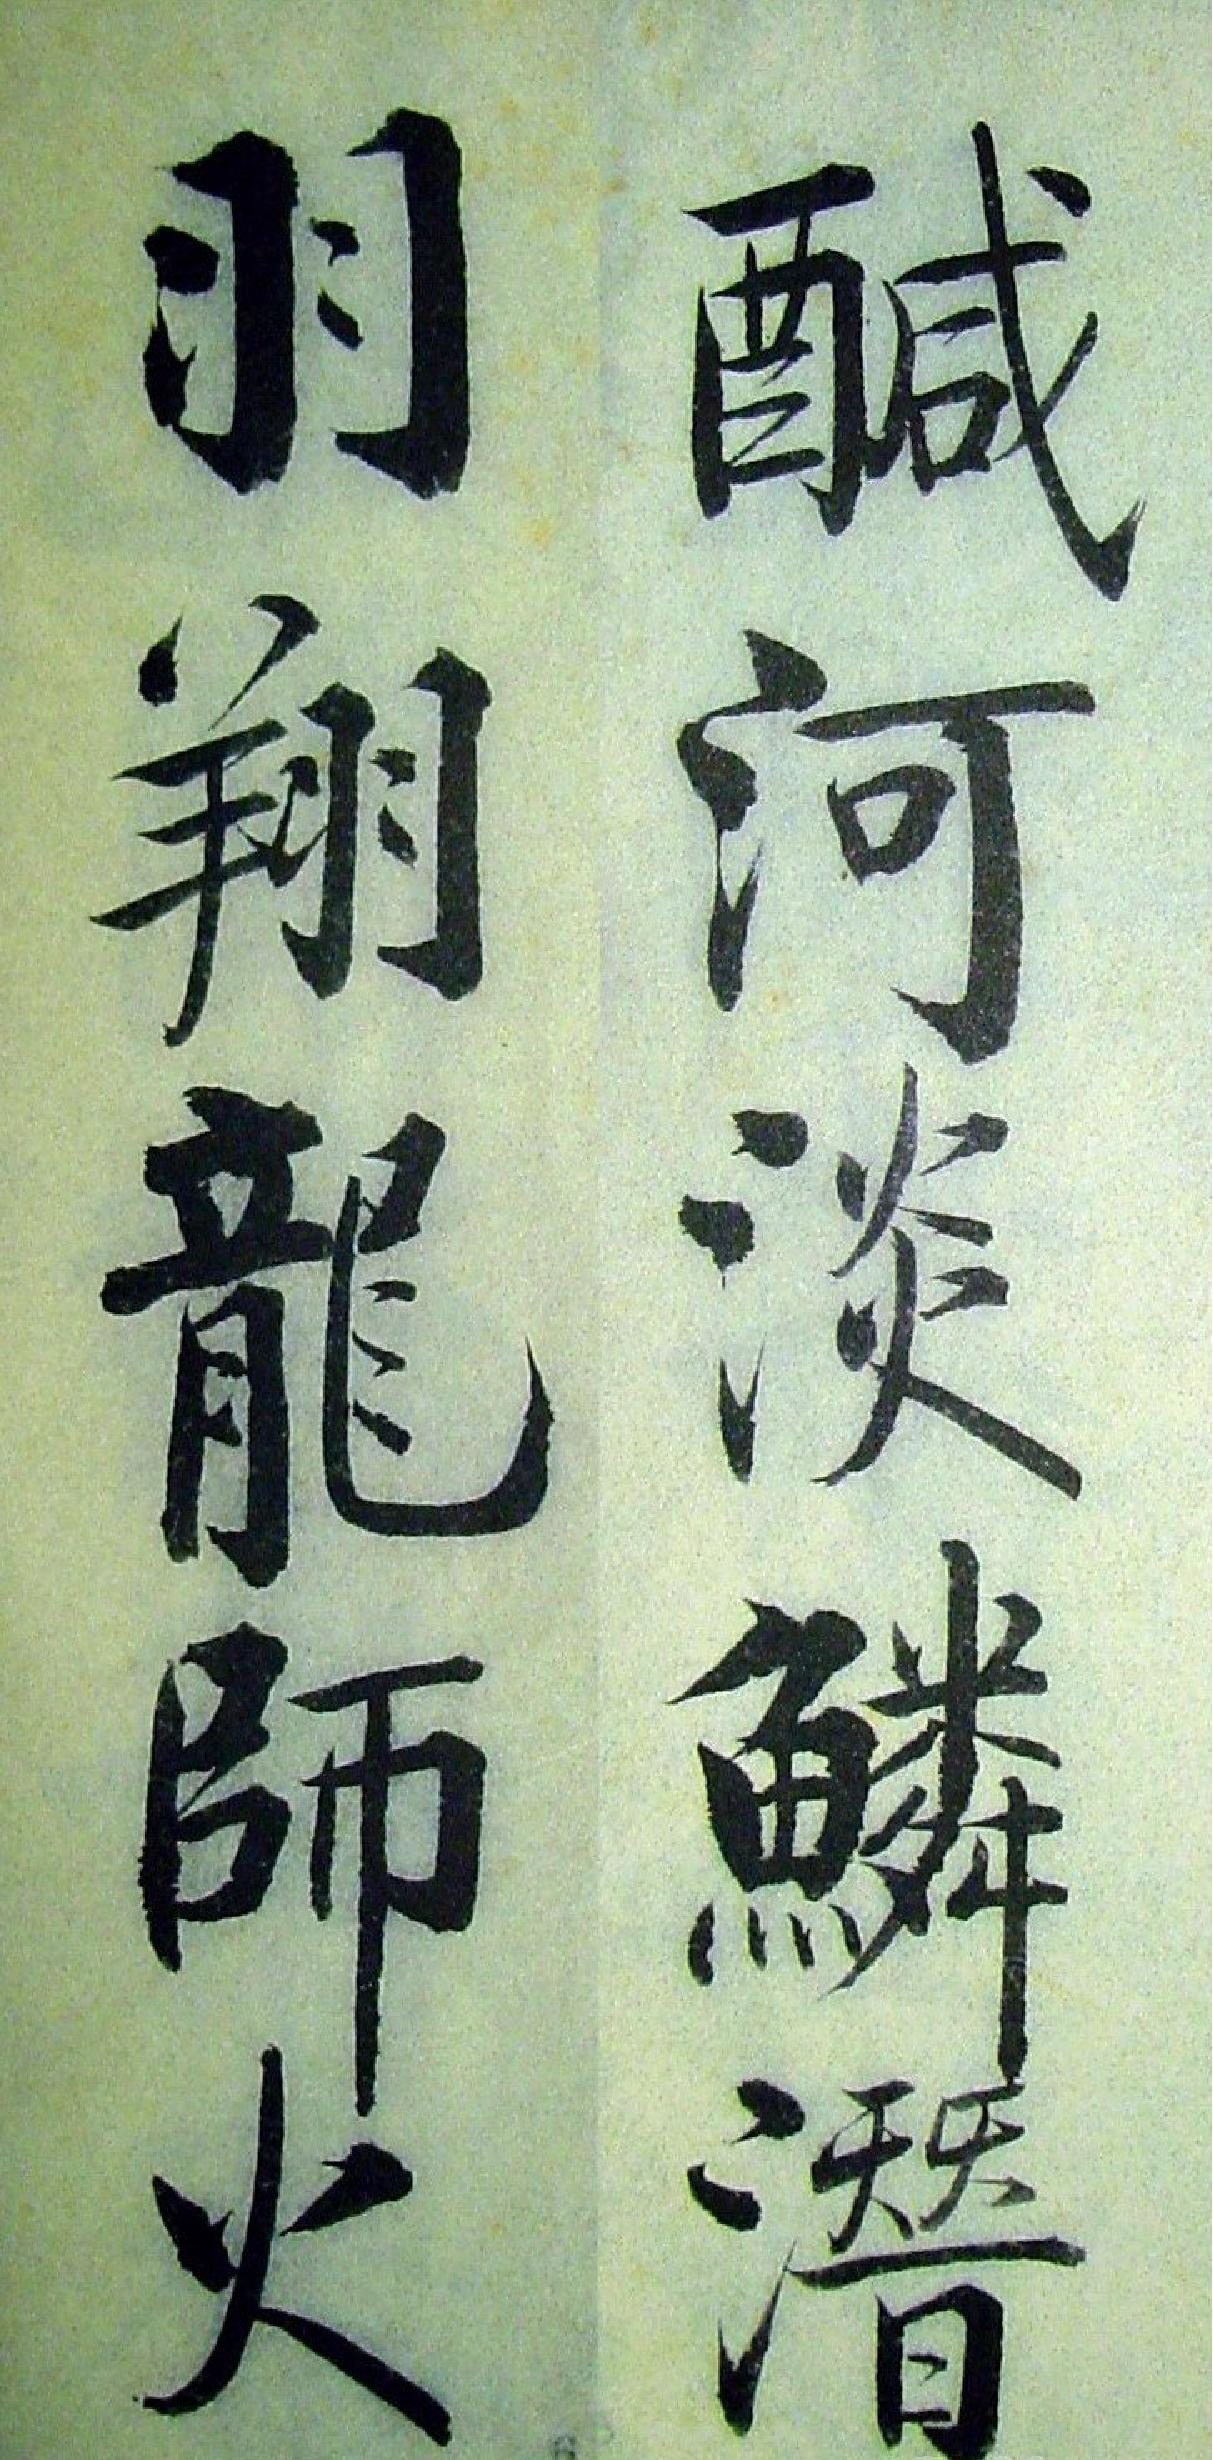 醎河淡鱗潛
羽翔龍師火